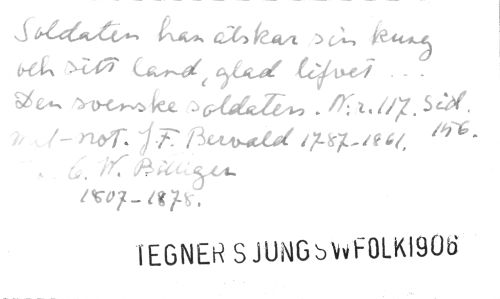 Soldaten han älskar sin kung
och sitt land, glad lifvet ...
Den svenske soldaten. N:r 117. Sid.
156.
mel-not. J.F. Berwald 1787-1861.
C. W. Böttiger
1807-1878.
TEGNER SJUNG SWFOLK1906